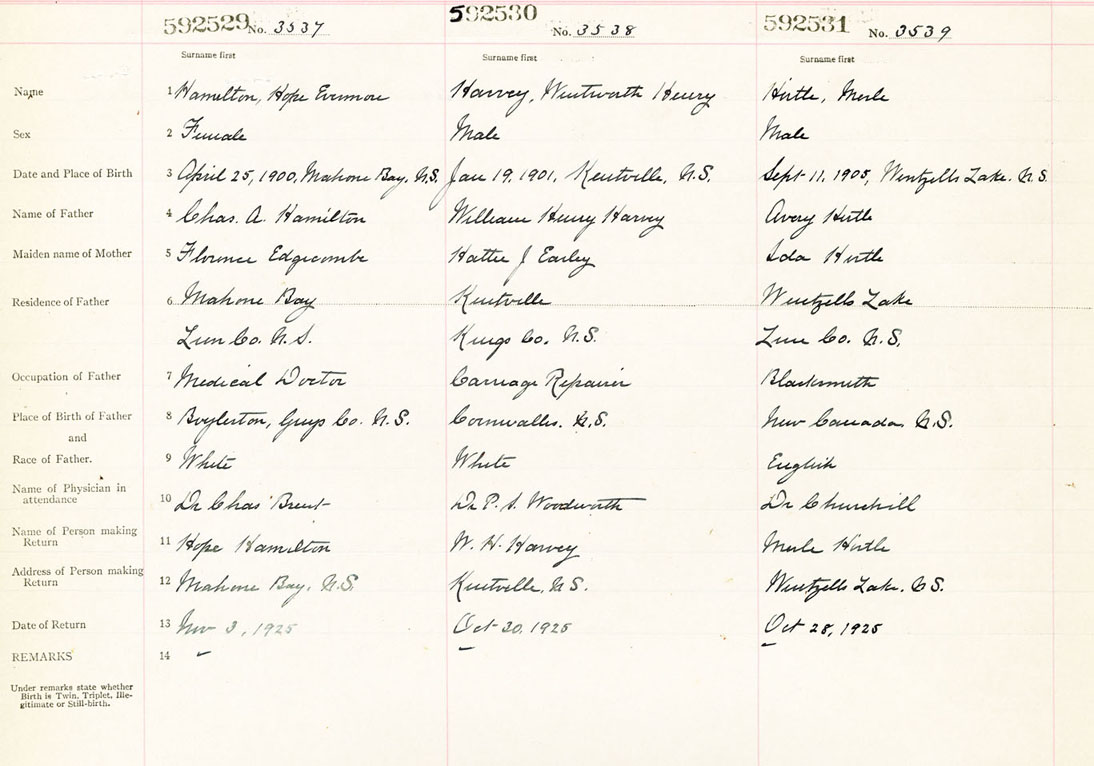 592529 No. 3537 592530 No. 3538 592531 No. 3539
Surname first Surname first Surname first
Name 1 Hamilton, Hope Evermore Harvey, Wentworth Henry Hirtle, Merle
Sex 2 Female Male Male
Date and Place of Birth 3 April 25, 1900, Mahone Bay, N.S. Jan 19, 1901, Kentville, N.S. Sept 11, 1905, Wentzells Lake, N.S.
Name of Father 4 Chas. A. Hamilton William Henry Harvey Avery Hirtle
Maiden name of Mother 5 Florence Edgecombe Hattie J Earley Ida Hirtle
Residence of Father 6 Mahone Bay Kentville Wentzells Lake
Lun Co. N.S. Kings Co. N.S. Lun Co. N.S.
Occupation of Father 7 Medical Doctor Carriage Repairer Blacksmith
Place of Birth of Father 8 Boylerton, Guys Co. N.S. Cornwallis, N.S. New Canada, N.S.
and
Race of Father. 9 White White English
Name of Physician in
attendance 10 Dr Chas Brent Dr P. S. Woodworth Dr Churchill
Name of Person making
Return 11 Hope Hamilton W. H. Harvey Merle Hirtle
Address of Person making
Return 12 Mahone Bay, N.S. Kentville, N.S. Wentzells Lake,
Date of Return 13 Nov 3, 1925 Oct 30, 1925 Oct 28, 1925
REMARKS 14
Under remarks state whether
Birth is Twin, Triplet, Ille-
gitimate or Still-birth.